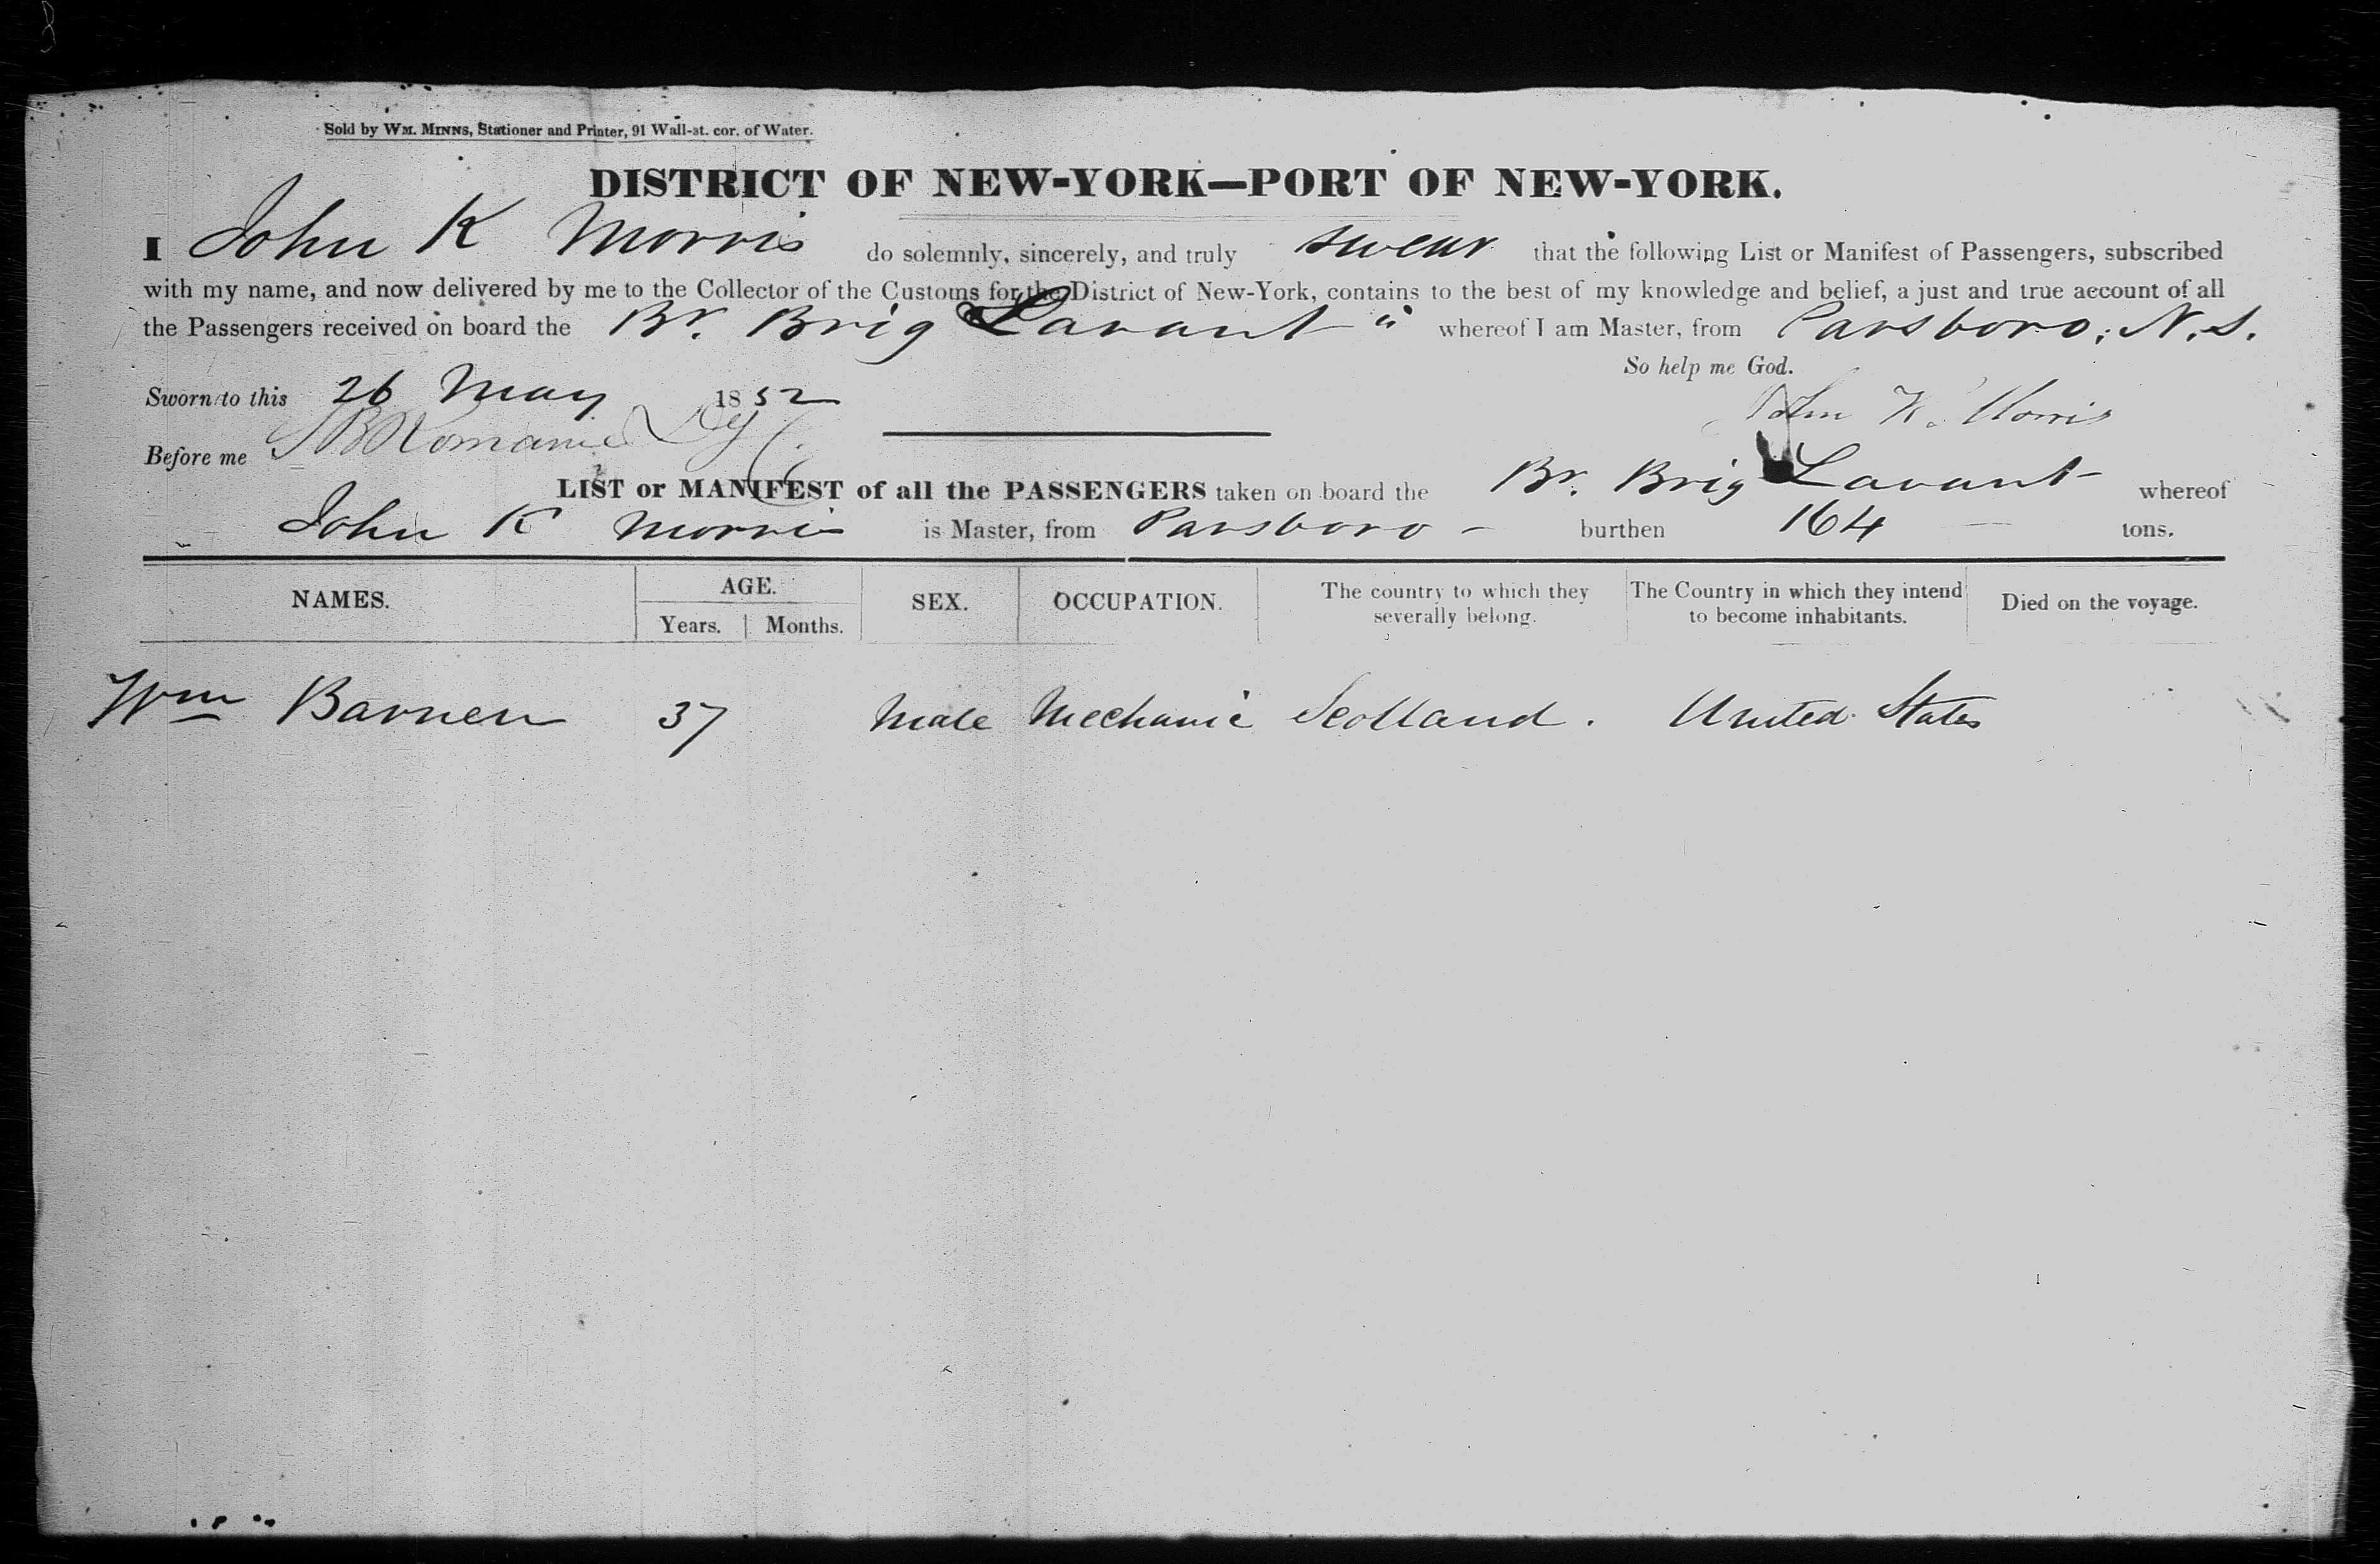 Sold by WM. MINNS, Stationer and Printer, 91 Wall-st. cor. of Water.
DISTRICT OF NEW-YORK—PORT OF NEW-YORK.
I John K Morris do solemnly, sincerely, and truly swear that the following List or Manifest of Passengers, subscribed
with my name, and now delivered by me to the Collector of the Customs for the District of New-York, contains to the best of my knowledge and belief, a just and true account of all
the Passengers received on board the Br. Brig Lavant " whereof I am Master, from Parsboro, N.S.
So help me God.
Sworn to this 26 May 1852
John K. Morris
Before me
LIST or MANIFEST of all the PASSENGERS taken on board the Br. Brig Lavant whereof
John K Morris is Master, from Parsboro - burthen 164 tons.
NAMES. AGE. Years. Months. SEX. OCCUPATION. The country to which they severally belong. The Country in which they intend to become inhabitants. Died on the voyage.
Wm 37 Male Mechanic Scotland. United States